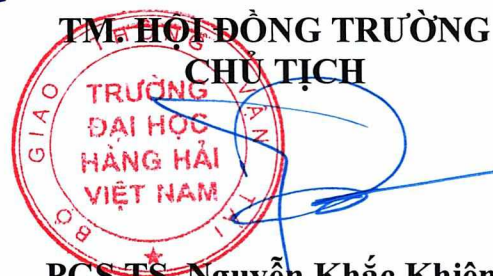 TM. HỘI ĐỒNG TRƯỜNG
CHỦ TỊCH
BỘ GIAO THÔNG VẬN TẢI
TRƯỜNG
ĐẠI HỌC
HÀNG HẢI
VIỆT NAM
PGS.TS. Nguyễn Khắc Khiêm